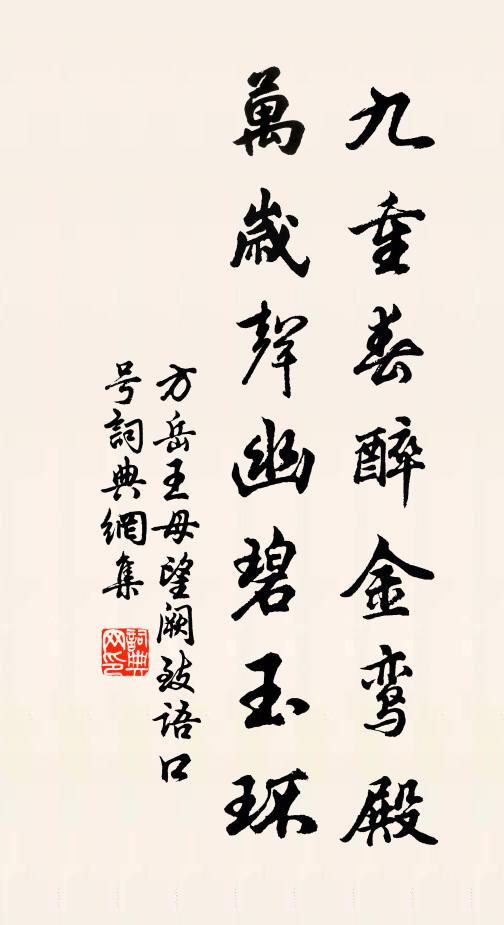 九重春醉金鸾殿
萬歲聲幽碧玉环
方岳王母望阙致语口
号詞典網集
詞典网印